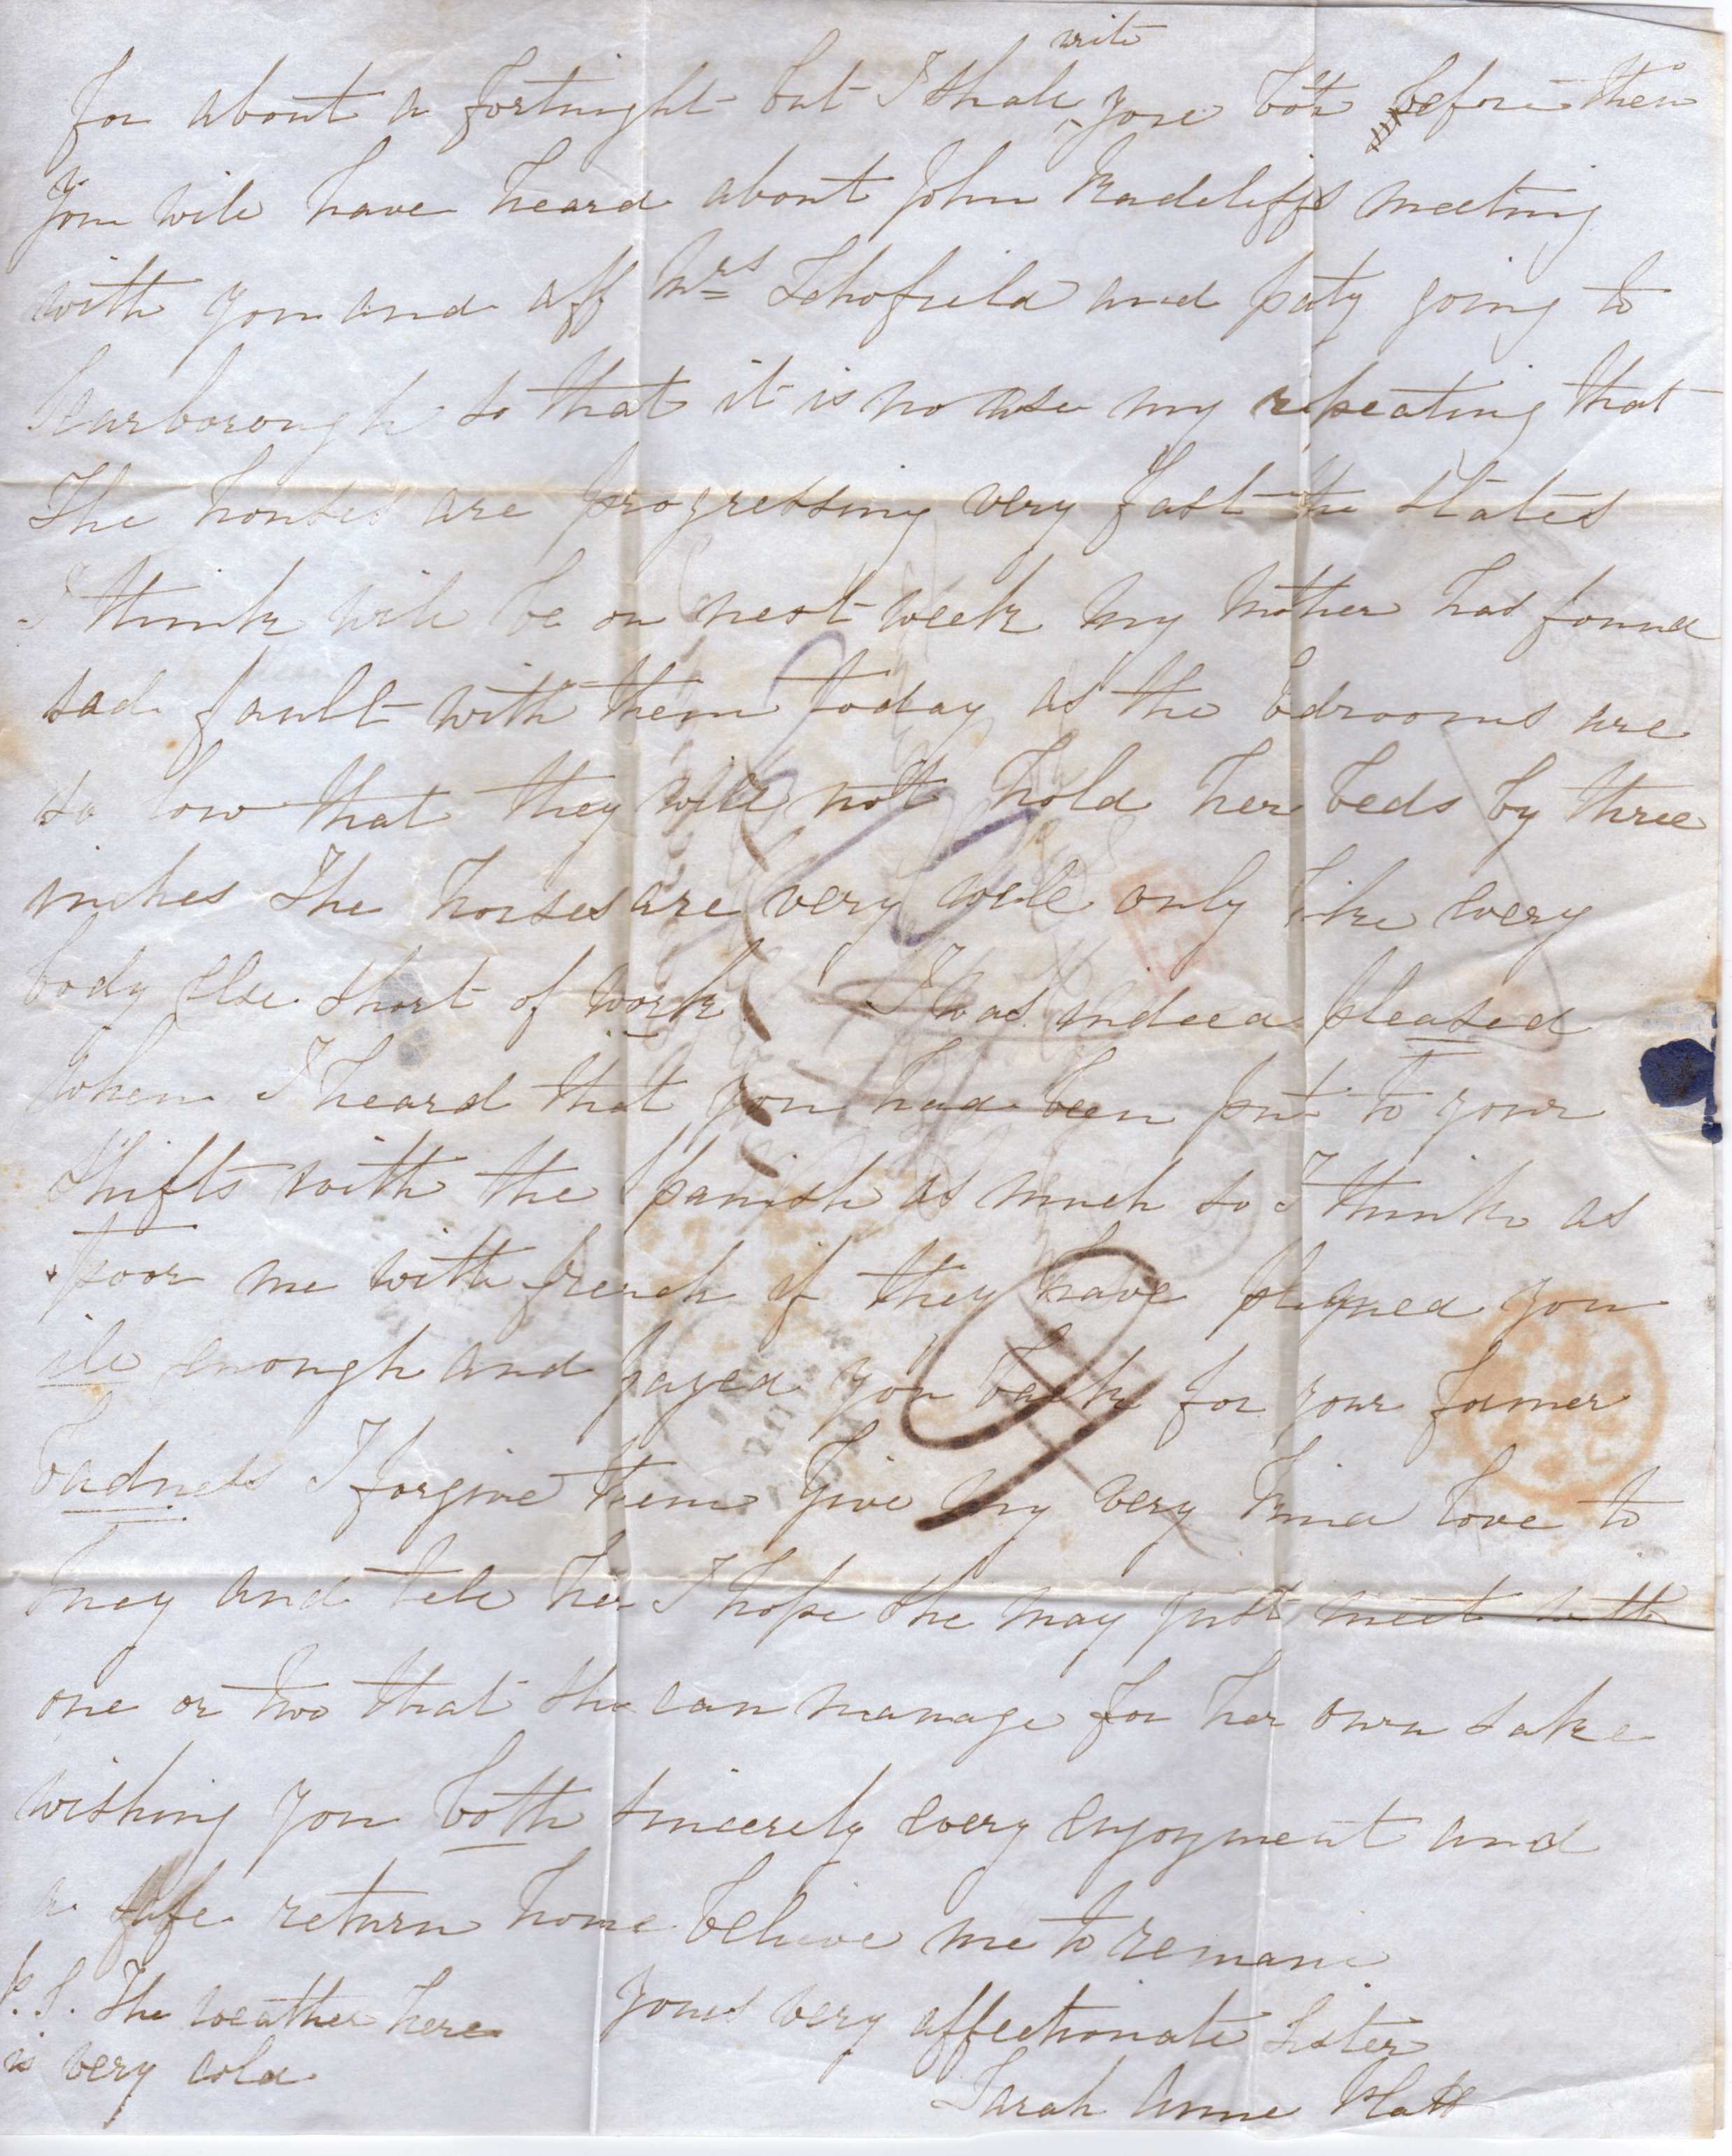 for about a fortnight but I shall write you both before then
You will have heard about John Radcliffs meeting
with you and off Mrs Schofield and paty going to
Scarborough so that it is no use my repeating that
The houses are progressing very fast the slates
I think will be on next week my mother has found
sad fault with them today as the bedrooms are
so low that they will not hold her beds by three
inches The horses are very well only like every
body else short of work I was indeed pleased
when I heard that you had been put to your
shifts with the Spanish as much so I think as
poor me with french if they have plagued you
ill enough and payed you back for your former
badness I forgive them Give my very kind love to
and tell her I hope she may just meet with
one or two that she can manage for her own sake
wishing you both sincerely every enjoyment and
a safe return home believe me to remain
Yours very affectionate Sister
Sarah Anne Platt
P.S. The weather here
is very cold